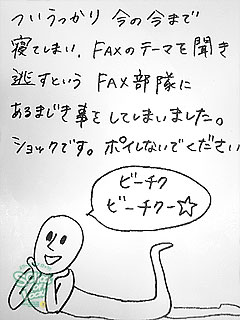 ついうっかり 今の今まで
寝てしまい、FAXのテーマを聞き
逃すという FAX部隊に
あるまじき事をしてしまいました。
ショックです。ポイしないでください
ビーチク
ビーチクー☆